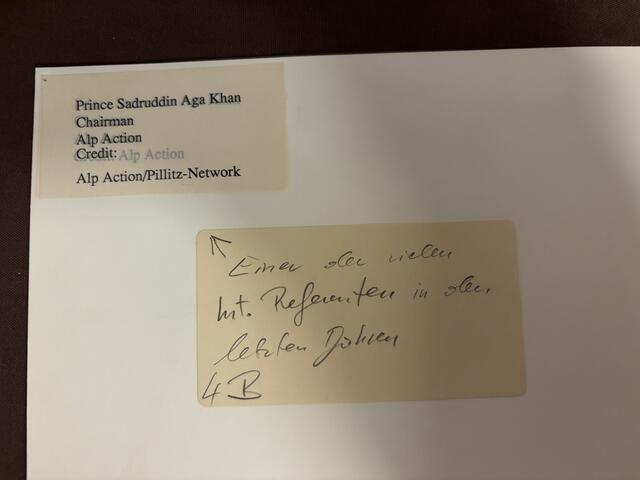 Prince Sadruddin Aga Khan
Chairman
Alp Action
Credit:
Credit: Alp Action
Alp Action/Pillitz-Network
Einer der vielen
Int. Referenten in den
letzten Jahren
4 B